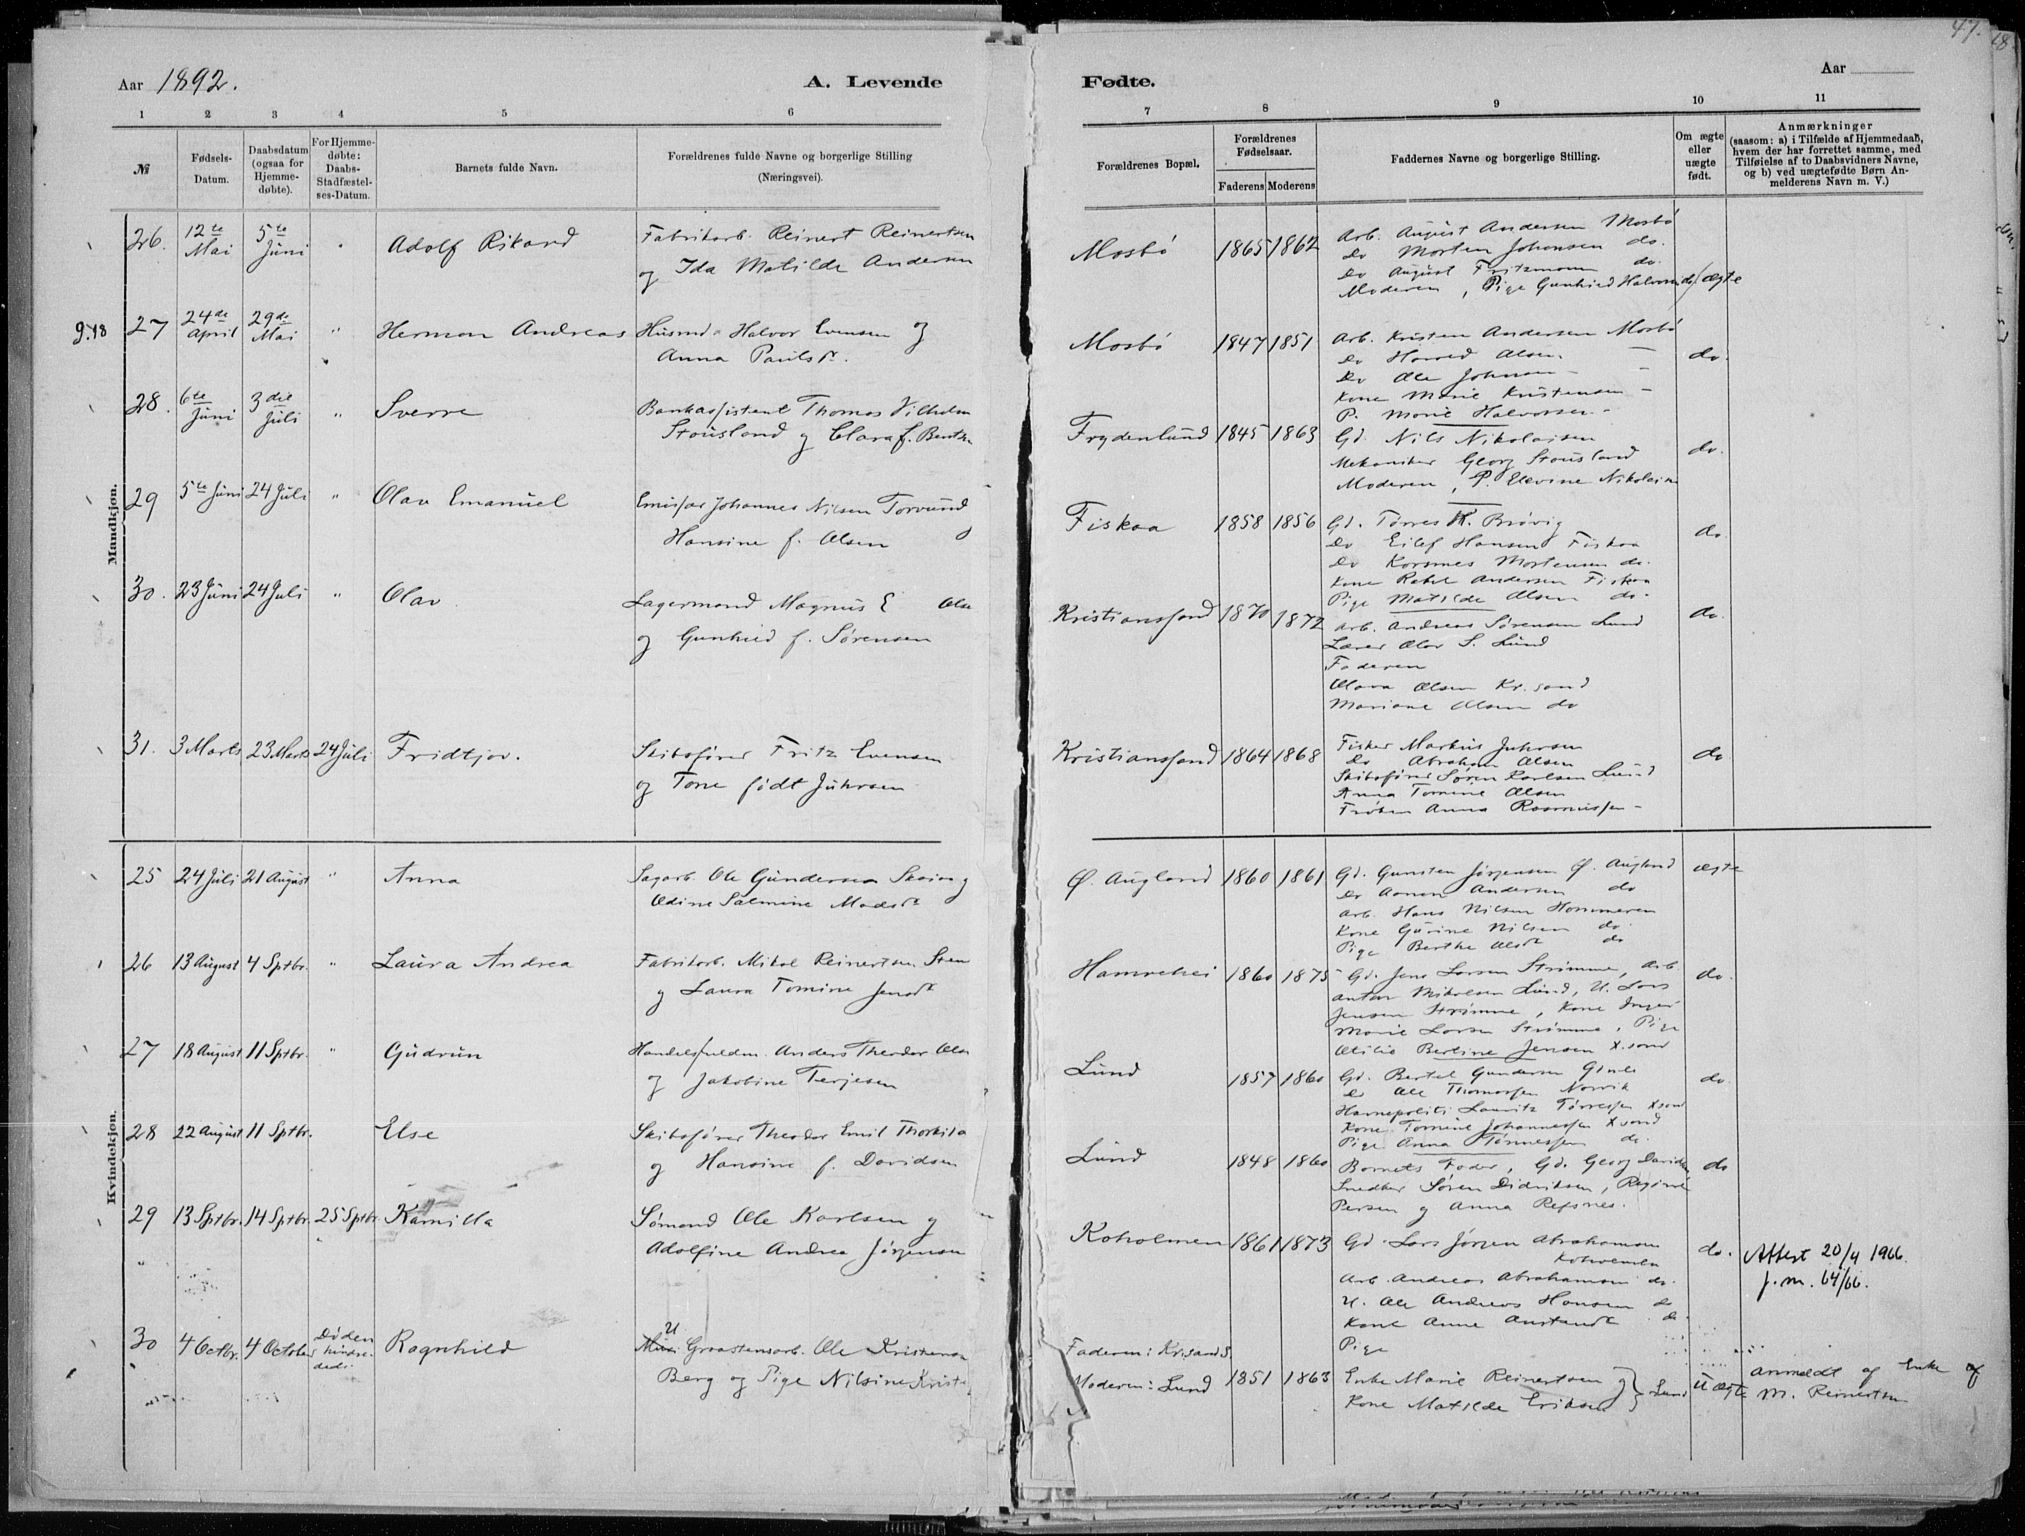 47.
Aar 1892.
A. Levende
Fødte.
Aar
1 2 3 4 5 6
7 8 9 10 11
№
Fødsels-
Datum.
Daabsdatum
(ogsaa for
Hjemme-
døbte).
For Hjemme-
døbte:
Daabs-
Stadfæstel-
ses-Datum.
Barnets fulde Navn.
Forældrenes fulde Navne og borgerlige Stilling
(Næringsvei).
Forældrenes Bopæl.
Forældrenes
Fødselsaar.
Faderens Moderens
Faddernes Navne og borgerlige Stilling.
Om ægte
eller
uægte
født.
Anmærkninger
(saasom: a) i Tilfælde af Hjemmedaab,
hvem der har forrettet samme, med
Tilføielse af to Daabsvidners Navne,
og b) ved uægtefødte Børn An-
melderens Navn m. V.)
Mandkjøn.
26. 12te Mai 5te Juni Adolf Rikard
Fabrikarb. Reinert Reinertsen
og Ida Matilde Andersen
Mosbø 1865 1862
Arb. August Andersen Mosbø
Do Morten Johansen do.
Do August Fritzmann do.
Moderen, Pige Gunhild Halvorsen do
ægte
27 24de April 29de Mai " Herman Andreas
Husmd. Halvor Evensen og
Anna Paulsdr.
Mosbø 1847 1851
Arb. Kristen Andersen Mosbø
Do Olsen —
Do Ole Johnsen —
Kone Marie Kristensen —
P. Marie Halvorsen —
do.
28. 6te Juni 3die Juli " Sverre
Bankassistent Thomas Vilhelm
Stousland og Clara f. Bentsen
Frydenlund 1845 1863
Gd. Nils Nikolaisen
Mekaniker Georg Stousland
Moderen, P. Elevine Nikolaisen
do.
29 5te Juni 24 Juli " Olav Emanuel
Emissær Johannes Nilsen Torvund og
Hansine f. Olsen
Fiskaa 1858 1856
Gd. Tørres K. Brøvig
Do Eilef Hansen Fiskaa
Do Korsmes Mortensen do.
Kone Rakel Andersen Fiskaa
Pige Matilde Olsen do.
do
30. 23 Juni 24 Juli " Olav
Lagermand Magnus E Olsen
og Gunhild f. Sørensen
Kristianssand 1870 1872
Arb. Andreas Sørensen Lund
Lærer Olav S. Lund
Faderen
Olava Olsen Kr.sand
Mariane Olsen do
do.
31. 3 Marts 23 Marts 24 Juli Fridtjov.
Skibsfører Fritz Evensen
og Tone født Juhrsen
Kristianssand 1864 1868
Fisker Markus Juhrsen
Do Abraham Olsen
Skibsfører Søren Karlsen Lund
Anna Tomine Olsen
Frøken Anna Rasmussen —
do
Kvindekjøn.
25 24 Juli 21 August " Anna
Sagarb. Ole Gundersen og
Odine Salmine Madsdr.
Ø. Augland 1860 1861
Gd. Gunsten Jørgensen Ø. Augland
Do Aanen Andersen do
Arb. Hans Nilsen Hommeren
Kone Gurine Nilsen do.
Pige Berthe Olsdr. do
ægte
26 13 August 4 Sptbr. " Laura Andrea
Fabrikarb. Mikal Reinertsen Sten
og Laura Tomine Jensdr.
Hamrehei 1860 1875
Gd. Jens Larsen Strømme, Arb.
Anton Mikalsen Lund, U. Lars
Jensen Strømme, Kone Inger
Marie Larsen Strømme, Pige
Otilie Berline Jensen X.sand
do.
27 18 August 11 Sptbr. " Gudrun
Handelsfuldm. Anders Theodor Olsen
og Jakobine Terjesen
Lund 1857 1860
Gd. Bertel Gundersen
Do Ole Thomassen Norvik
Havnepoliti Lauritz Tørressen Xsand
Kone Tomine Johannessen Xsand
Pige Anna Tønnessen do.
do
28 22 August 11 Sptbr. Else
Skibsfører Theodor Emil Thorkilds
og Hansine f. Davidsen
Lund 1848 1860
Barnets Fader, Gd. Georg Davidsen
Snedker Søren Didriksen, Regine
Persen og Anna Refsnes.
do
29 13 Sptbr. 14 Sptbr. 25 Sptbr. Kamilla
Sømand Ole Karlsen og
Adolfine Andrea Jørgensen
Koholmen 1861 1873
Gd. Lars Jørgen Abrahamsen
Koholmen
Arb. Andreas Abrahamsen do.
U. Ole Andreas Hansen do
Kone Anne Aanstandt do.
Pige
do.
Attest 20/4 1966.
j.m. 64/66.
30 4 Octbr. 4 October Døden
hindre-
dede
Ragnhild
U Graastensarb. Ole Kristensen
Berg og Pige Nilsine Krist
Faderen: Krsands
Moderen: Lund
1851 1863
Enke Marie Reinertsen og
Kone Matilde Eriksen
} Lund
Uægte
anmeldt af Enke
M. Reinertsen